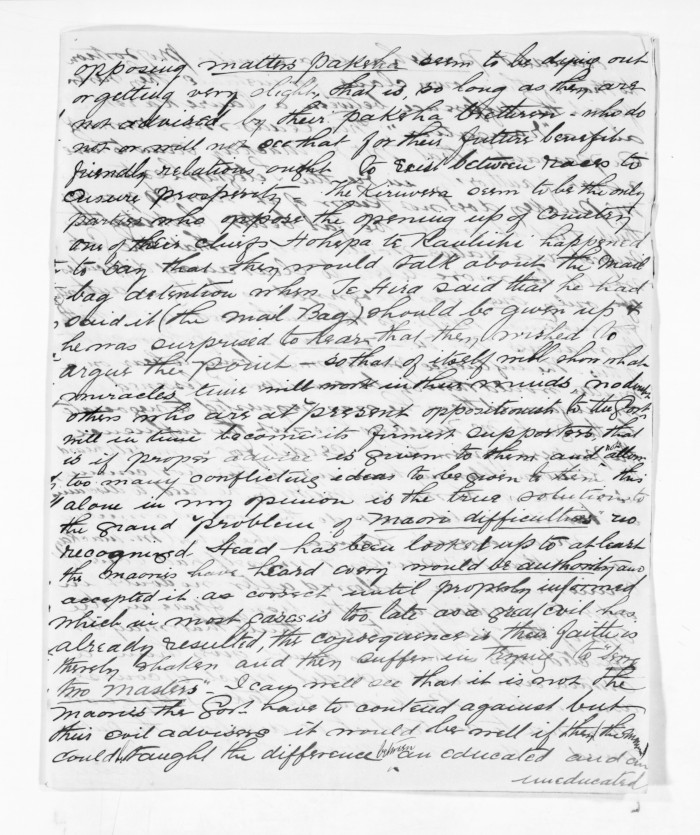 opposing matters pakeha seem to be dying out
or getting very slight, that is, so long as they are
not advised by their pakeha brethren - who do
not or will not see that for "their future benefit
friendly relations ought to exist between races to
ensure prosperity The Kiriwera seem to be the only
parties who oppose the opening up of country
one of their chiefs Hohepa te happened
to say that they would talk about the Mail
bag detention when Te Hira said that he had
said it (the Mail Bag) should be given up &
he was surprised to hear that they wished to
argue the point - so that of itself will show what
miracles time will work in their minds, no doubt
others who are at present oppositionist to the Govt
will in time become its firmest supporters, that
is if proper advice is given to them and not allow
too many conflicting ideas to be given to them this
alone in my opinion is the true solution to
the grand problem of Maori difficulties" no
recognized Head has been looked up to at least
the maoris have heard every would be authority and
accepted it as correct until properly informed
which in most cases is too late as a great evil has
already resulted, the consequence is their faith is
thereby shaken and they suffer in trying to "serve
two masters". I can well see that it is not the
Maories the Govt. have to contend against but
their evil advisers it would be well if they the
could be taught the difference between an educated and an
uneducated